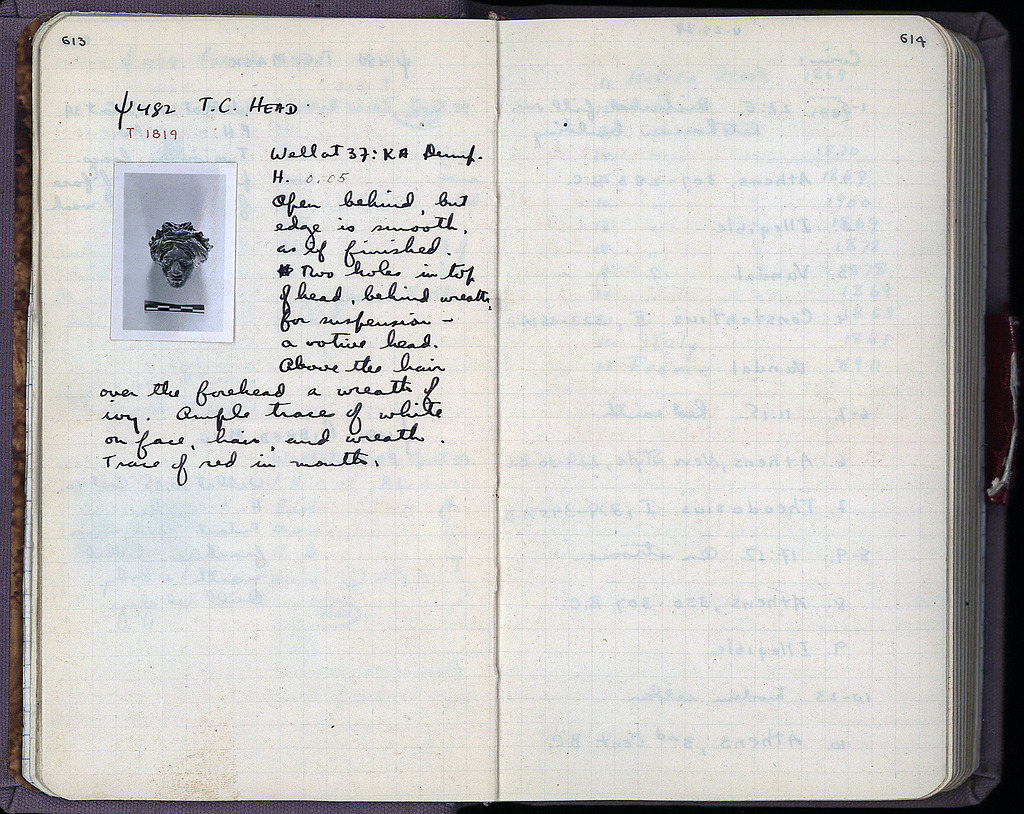 613
614
ψ 482 T.C. HEAD
T 1819
Well at 37:KA Dump.
H. 0.05
Open behind, but
edge is smooth,
as if finished.
Two holes in top
of head, behind wreath,
for suspension –
a votive head.
Above the hair
over the forehead a wreath of
ivy. Ample trace of white
on face, hair, and wreath.
Trace of red in mouth.